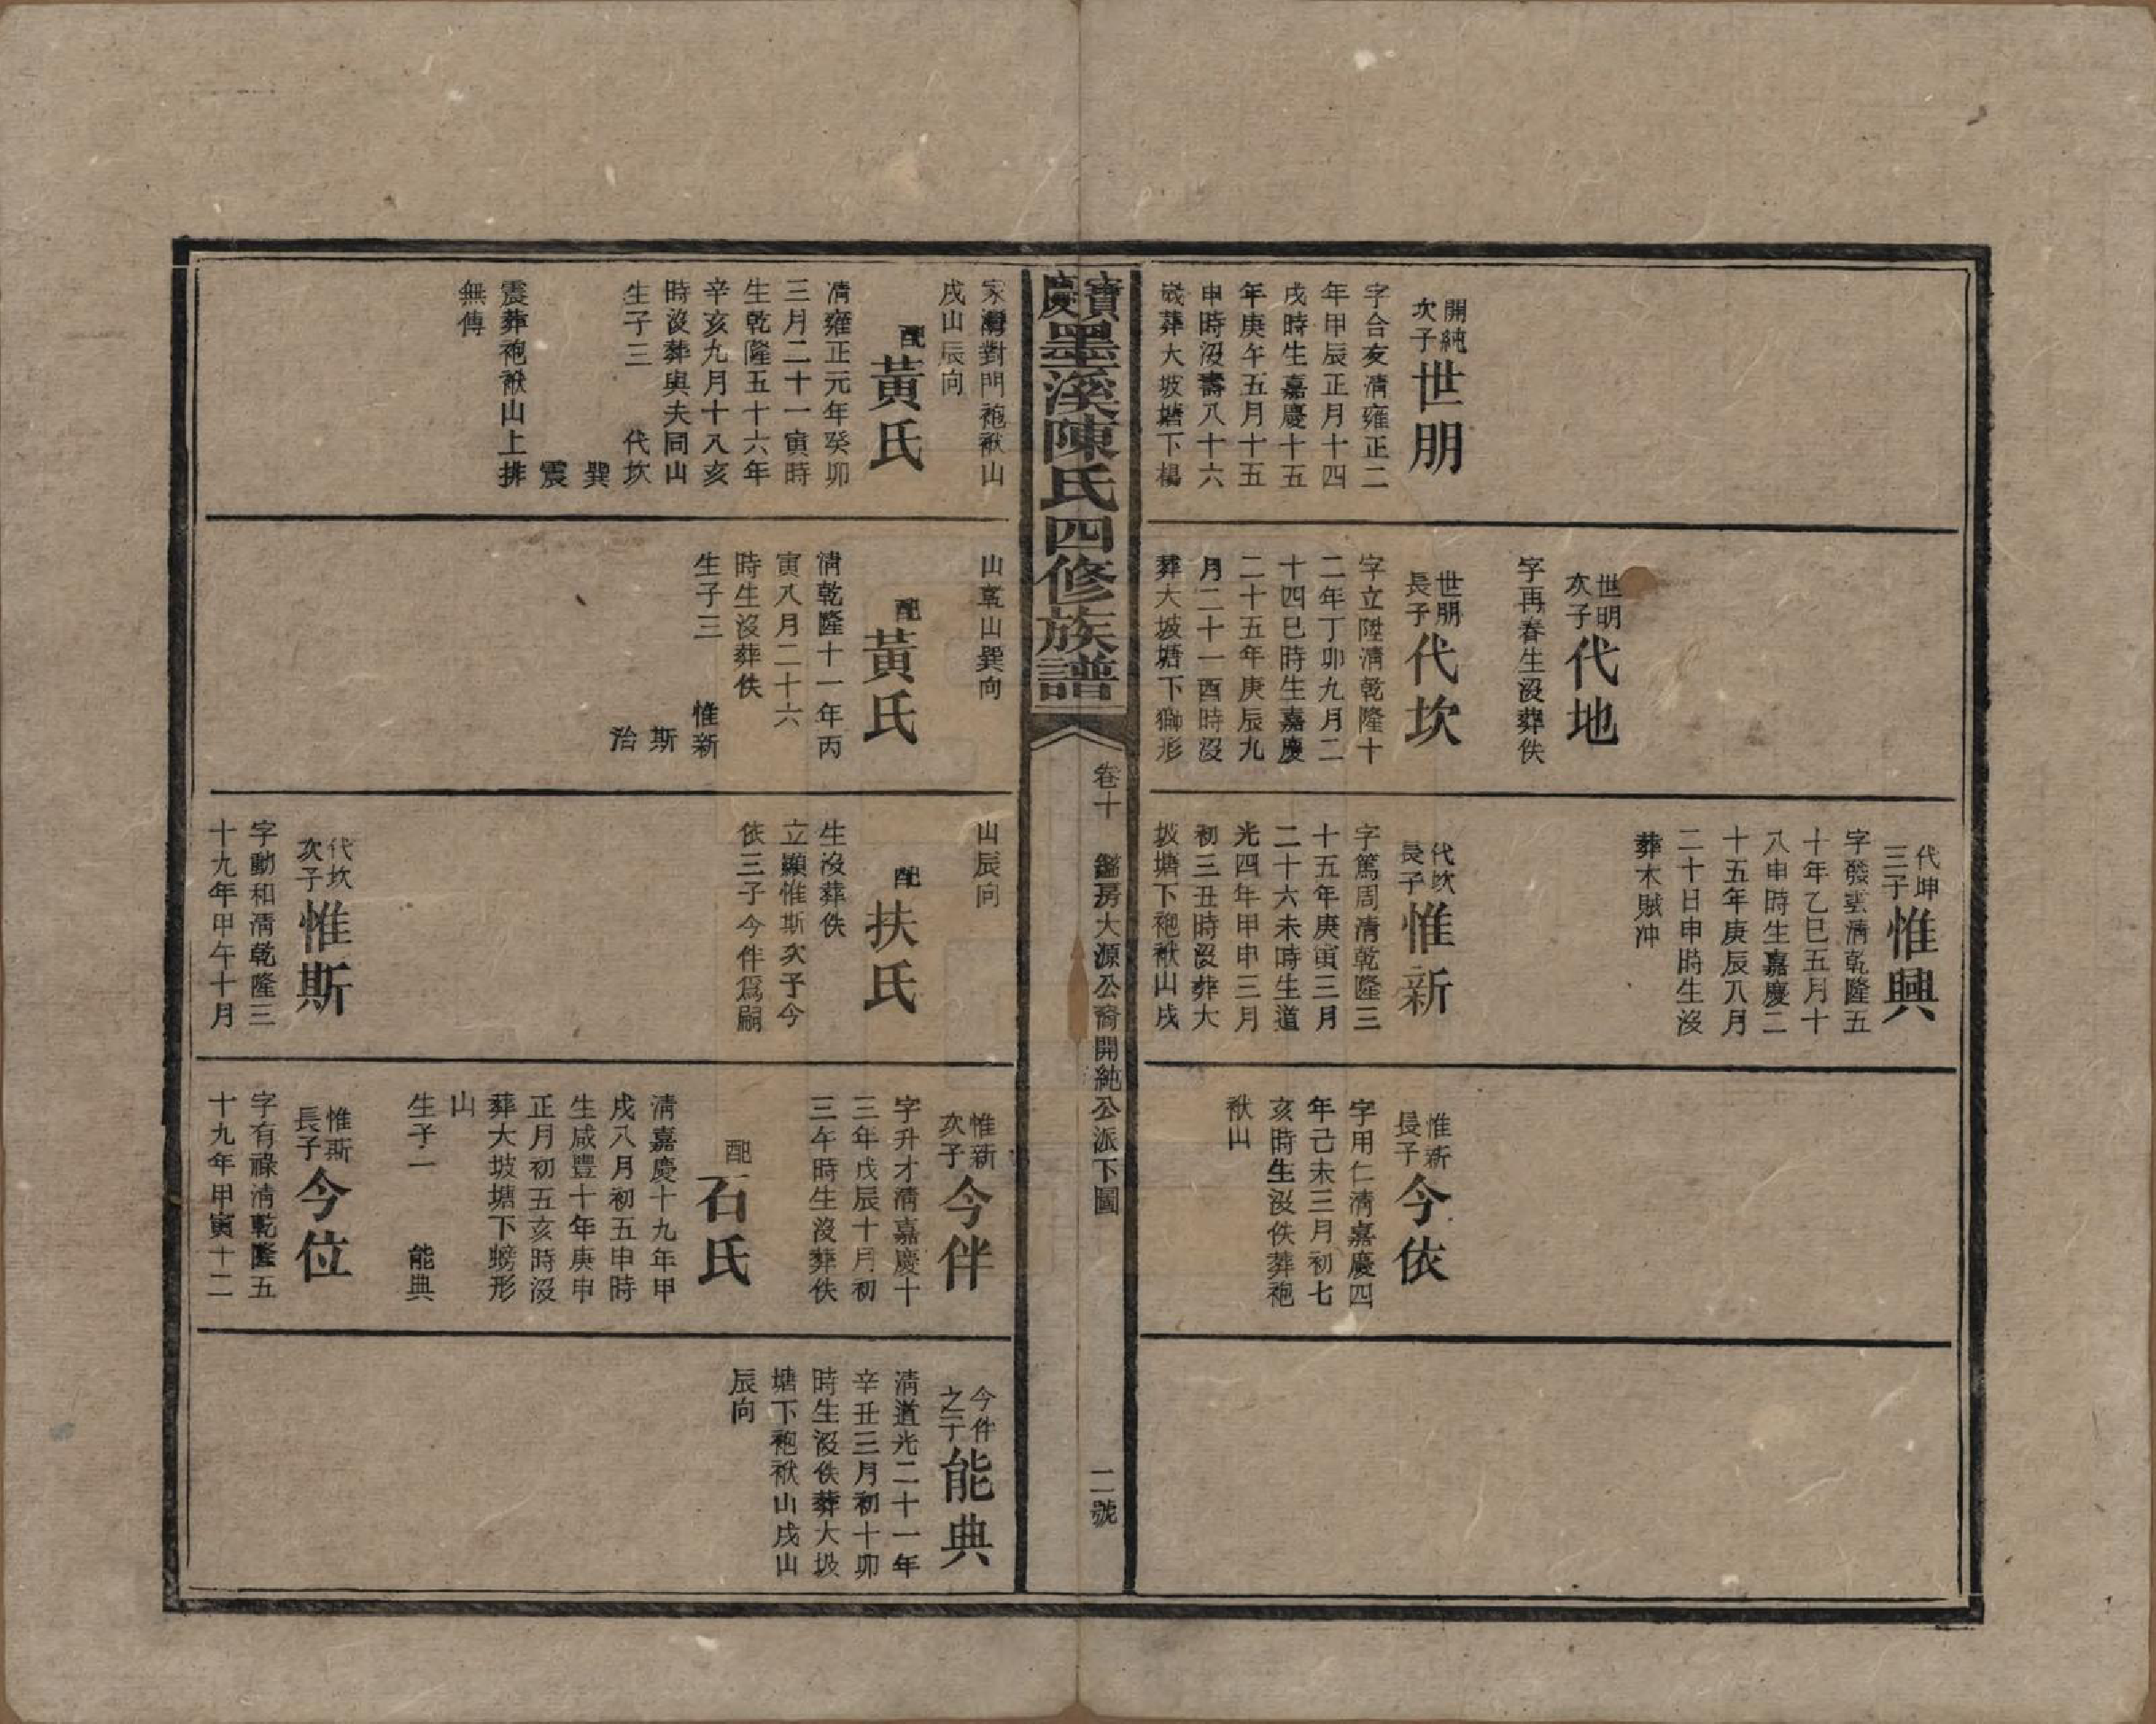 開純
次子
世朋
字合友清雍正二
年甲辰正月十四
戌時生嘉慶十五
年庚午五月十五
申時沒壽八十六
歲葬大坡塘下楊
世明
次子
代地
字再春生沒葬佚
世朋
長子
代坎
字立陞清乾隆十
二年丁卯九月二
十四巳時生嘉慶
二十五年庚辰九
月二十一酉時沒
葬大坡塘下獅形
代坤
三子
惟興
字發雲清乾隆五
十年乙巳五月十
八申時生嘉慶二
十五年庚辰八月
二十日申時生沒
葬木賊冲
代坎
長子
惟新
字篤周清乾隆三
十五年庚寅三月
二十六未時生道
光四年甲申三月
初三丑時沒葬大
坡塘下袍袱山戌
惟新
長子
今依
字用仁清嘉慶四
年己未三月初七
亥時生沒佚葬袍
袱山
寶慶墨溪陳氏四修族譜
卷十
鑑房大源公裔開純公派下圖
二號
家灣對門袍袱山
戌山辰向
配
黃氏
清雍正元年癸卯
三月二十一寅時
生乾隆五十六年
辛亥九月十八亥
時沒葬與夫同山
生子三 代坎
巽
震
震葬袍袱山上排
無傳
山乾山巽向
配
黃氏
清乾隆十一年丙
寅八月二十六
時生沒葬佚
生子三 惟新
斯
治
山辰向
配
扶氏
生沒葬佚
立顯惟斯次子今
依三子今伴爲嗣
代坎
次子
惟斯
字動和清乾隆三
十九年甲午十月
惟新
次子
今伴
字升才清嘉慶十
三年戊辰十月初
三午時生沒葬佚
配
石氏
清嘉慶十九年甲
戌八月初五申時
生咸豐十年庚申
正月初五亥時沒
葬大坡塘下螃形
山
生子一 能典
惟斯
長子
今位
字有祿清乾隆五
十九年甲寅十二
今伴
之子
能典
清道光二十一年
辛丑三月初十卯
時生沒佚葬大坡
塘下袍袱山戌山
辰向